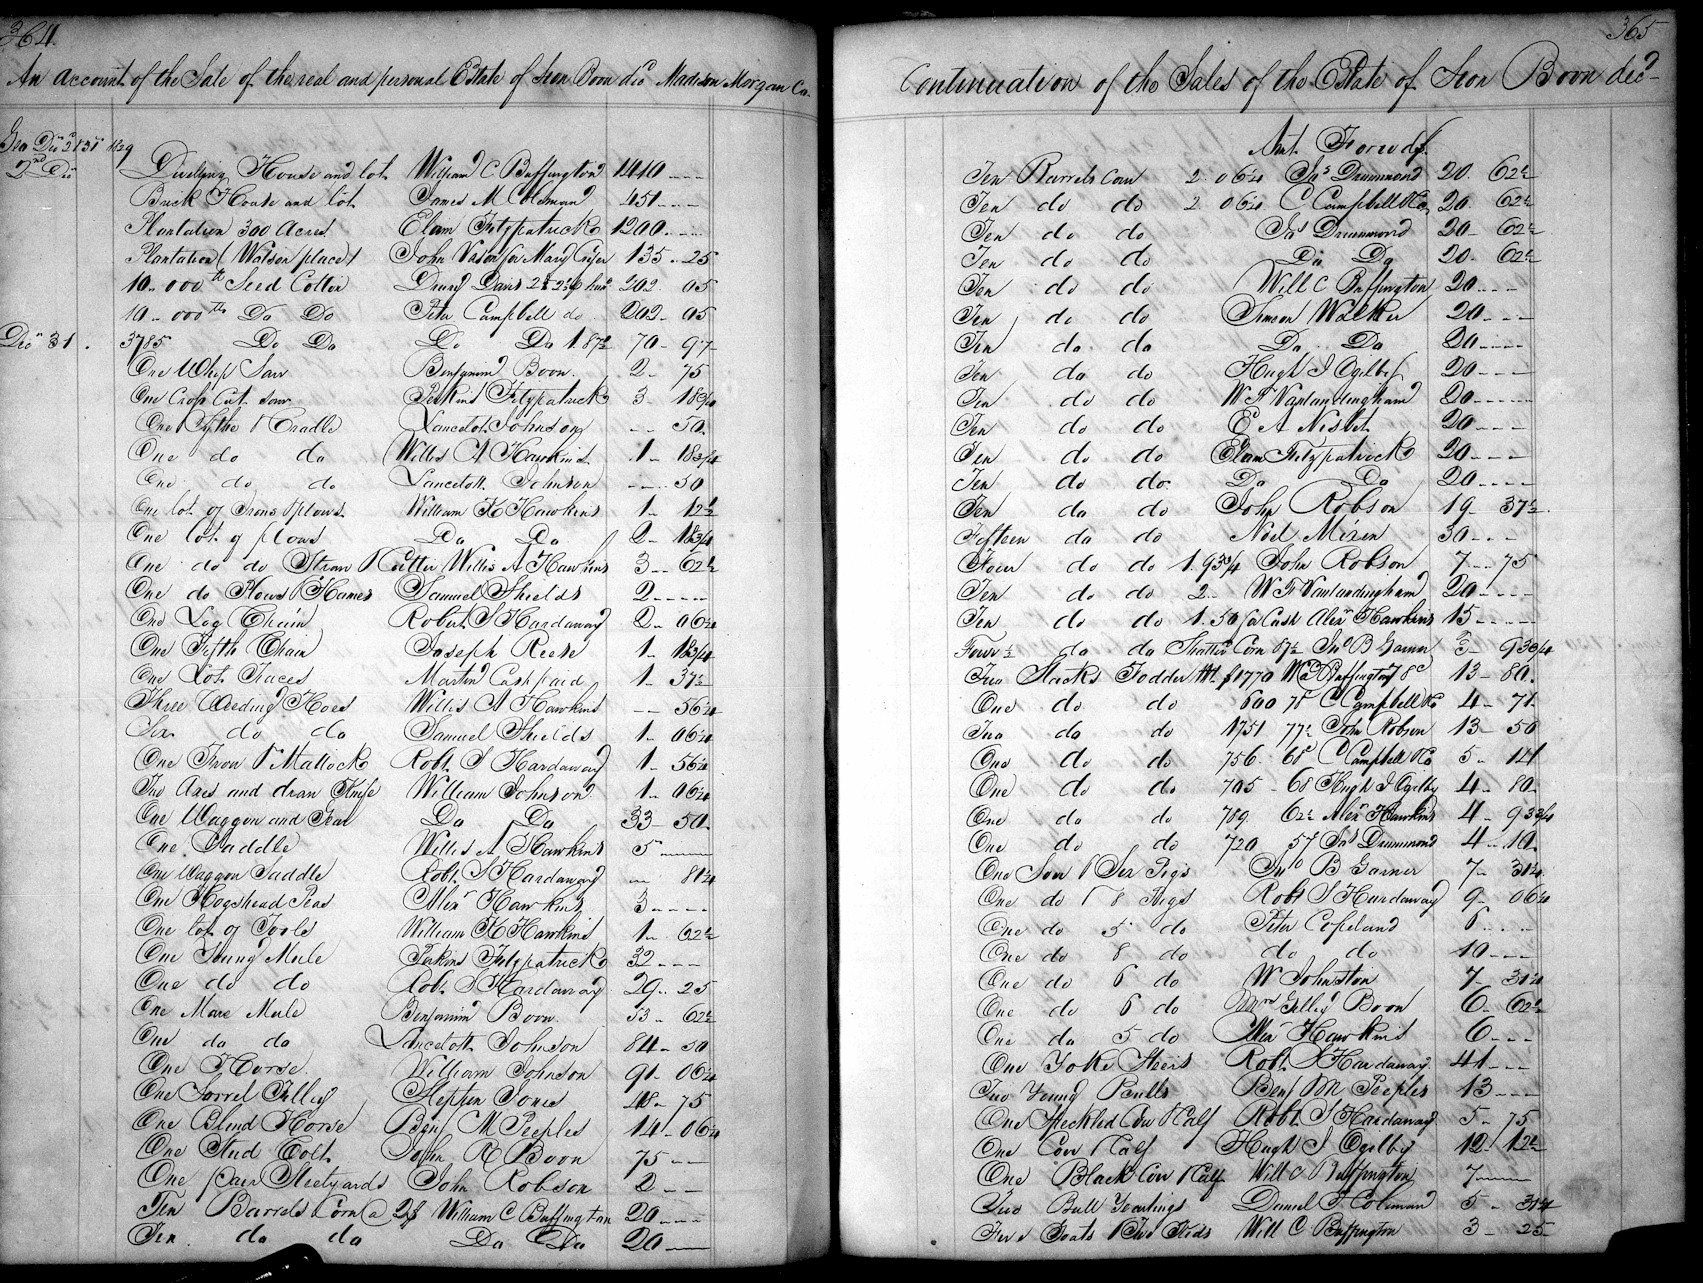 364.
An Account of the Sale of the real and personal Estate of Boon decd Madison Morgan Co.
Geo Decr 31st 1829
Dwelling House and lot William C Buffington 1410 ----
Brick House and lot James M Coleman 451 ----
Plantation 300 Acres Elam Fitzpatrick 1200 ----
Plantation (Watson place) John Vason for Mary 135 .. 25
10..000th Seed Cotton Davis 202 .. 05
10..000th Do Do Peter Campbell do 202 .. 05
Decr 31. 3785 Do Do Do Do 1.87½ 70 - 97
One Whip Saw Benjamin Boon. 2 - 75
One Cross Cut Saw Perkins Fitzpatrick 3 18¾
One Sythe & Cradle Lancelot Johnson -- 50.
One do do Willis A Hawkins 1 - 18¾
One do do Lancelott Johnson --- 50
One lot of Irons & plows William H Hawkins 1 - 12½
One lot of plows Do Do 2 - 18¾
One do do Straw Cutter Willis A Hawkins 3 -- 62½
One do Hows & Hames Samuel Shields 2 -----
One Log Chain Robert S Hardaway 2 - 06¼
One Fifth Chain Joseph Reese 1 - 18¾
One Lot Traces Martin Cash paid 1 - 37½
Three Weeding Hoes Willis A Hawkins -- 56¼
Six do do Samuel Shields 1 - 06¼
One Frow & Mattock Robt. S Hardaway 1 - 56¼
Two Axes and draw Knife William Johnson 1 - 06¼
One Waggon and Gear Do Do 33 - 50.
One Saddle Willis A Hawkins 5 ----
One Waggon Saddle Robt. S Hardaway -- 81¼
One Hogshead Peas Alexr Hawkins 3 ----
One lot of Tools William H Hawkins 1 - 62½
One Young Mule Perkins Fitzpatrick 32 ---
One do do Robt. S Hardaway 29 .. 25
One Mare Mule Benjamin Boon. 53 - 62½
One do do Lancelott Johnson 84 - 50
One Horse. William Johnson 91 - 06¼
One Sorrel Filley Steppen Jones 48 - 75
One Blind Horse Benj M Peeples 14 - 06¼
One Stud Colt John R Boon 75 --
One pair Steelyards John Robson 2 --
Ten Barrels Corn @ 2$ William C Buffington 20 ----
Ten do do Do Do 20 ---
365
Continuation of the Sales of the Estate of Boon decd
Amt. Forwd
Ten Barrels Corn 2.06¼ Jas Drummond 20. 62½
Ten do do 2 06¼ C Campbell & Co 20. 62½
Ten do do Jas Drummond 20 - 62½
Ten do do Do Do 20. 62½
Ten do do Will C Buffington 20 ---
Ten do do Simeon Walker 20 ---
Ten do do Do Do 20 ----
Ten do do Hugh J Ogilby 20 ---
Ten do do W F Vanlandingham 20 -----
Ten do do E A Nisbet 20 ----
Ten do do Elam Fitzpatrick 20 ---
Ten do do Do Do 20 ----
Ten do do John Robson 19 - 37½
Fifteen do do Noel Mixen 30 ---
Four do do 1.93¾ John Robson 7 --- 75
Ten do do 2 -- W F Vanlandingham 20 ----
Ten do do 1.50 for Cash Alexr Hawkins 15 -----
Four ½ do do Corn 87½ Jno B Garner 3 - 93¾
Two Stacks Fodder Wt. of 1770 Wm C Buffington 78c 13 - 80.
One do do 600 78 C Campbell & Co 4 - 71
Two do do 1751 77½ John Robson 13 - 50
One do do 756. 68 C Campbell & Co 5 - 14
One do do 705 - 68 Hugh J Ogilby 4 - 80.
One do do 789 62½ Alexr Hawkins 4 - 93¾
One do do 720 57 Jas Drummond 4 - 10.
One Sow & Six Pigs Jno B Garner 7 - 31¼
One do & 8 Pigs Robt S Hardaway 9 - 06¼
One do 5 do Peter Copeland 6 ----
One do 8 do do do 10 ---
One do 6 do W Johnston 7 - 31¼
One do 6 do Mrs Boon 6 - 62½
One do 5 do Alexr Hawkins 6 ---
One Yoke Steers Robt. S Hardaway. 41 ---
Two Young Bulls Benj M Peeples 13 ---
One Speckled Cow & Calf Robt. S Hardaway 5 - 75
One Cow & Calf Hugh J Ogilby 12 - 12½
One Black Cow & Calf Will C Buffington 7 ----
Two Bull Yearlings Daniel Coleman 5 - 31¼
Goats & Two Kids Will C Buffington 3 - 25